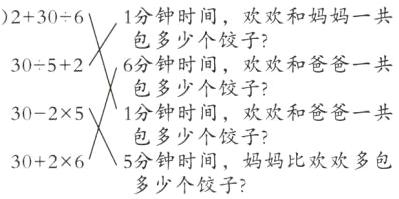 )2+30÷6 1分钟时间，欢欢和妈妈一共
包多少个饺子？
30÷5+2 6分钟时间，欢欢和爸爸一共
包多少个饺子？
30-2×5 1分钟时间，欢欢和爸爸一共
包多少个饺子？
30+2×6 5分钟时间，妈妈比欢欢多包
多少个饺子？